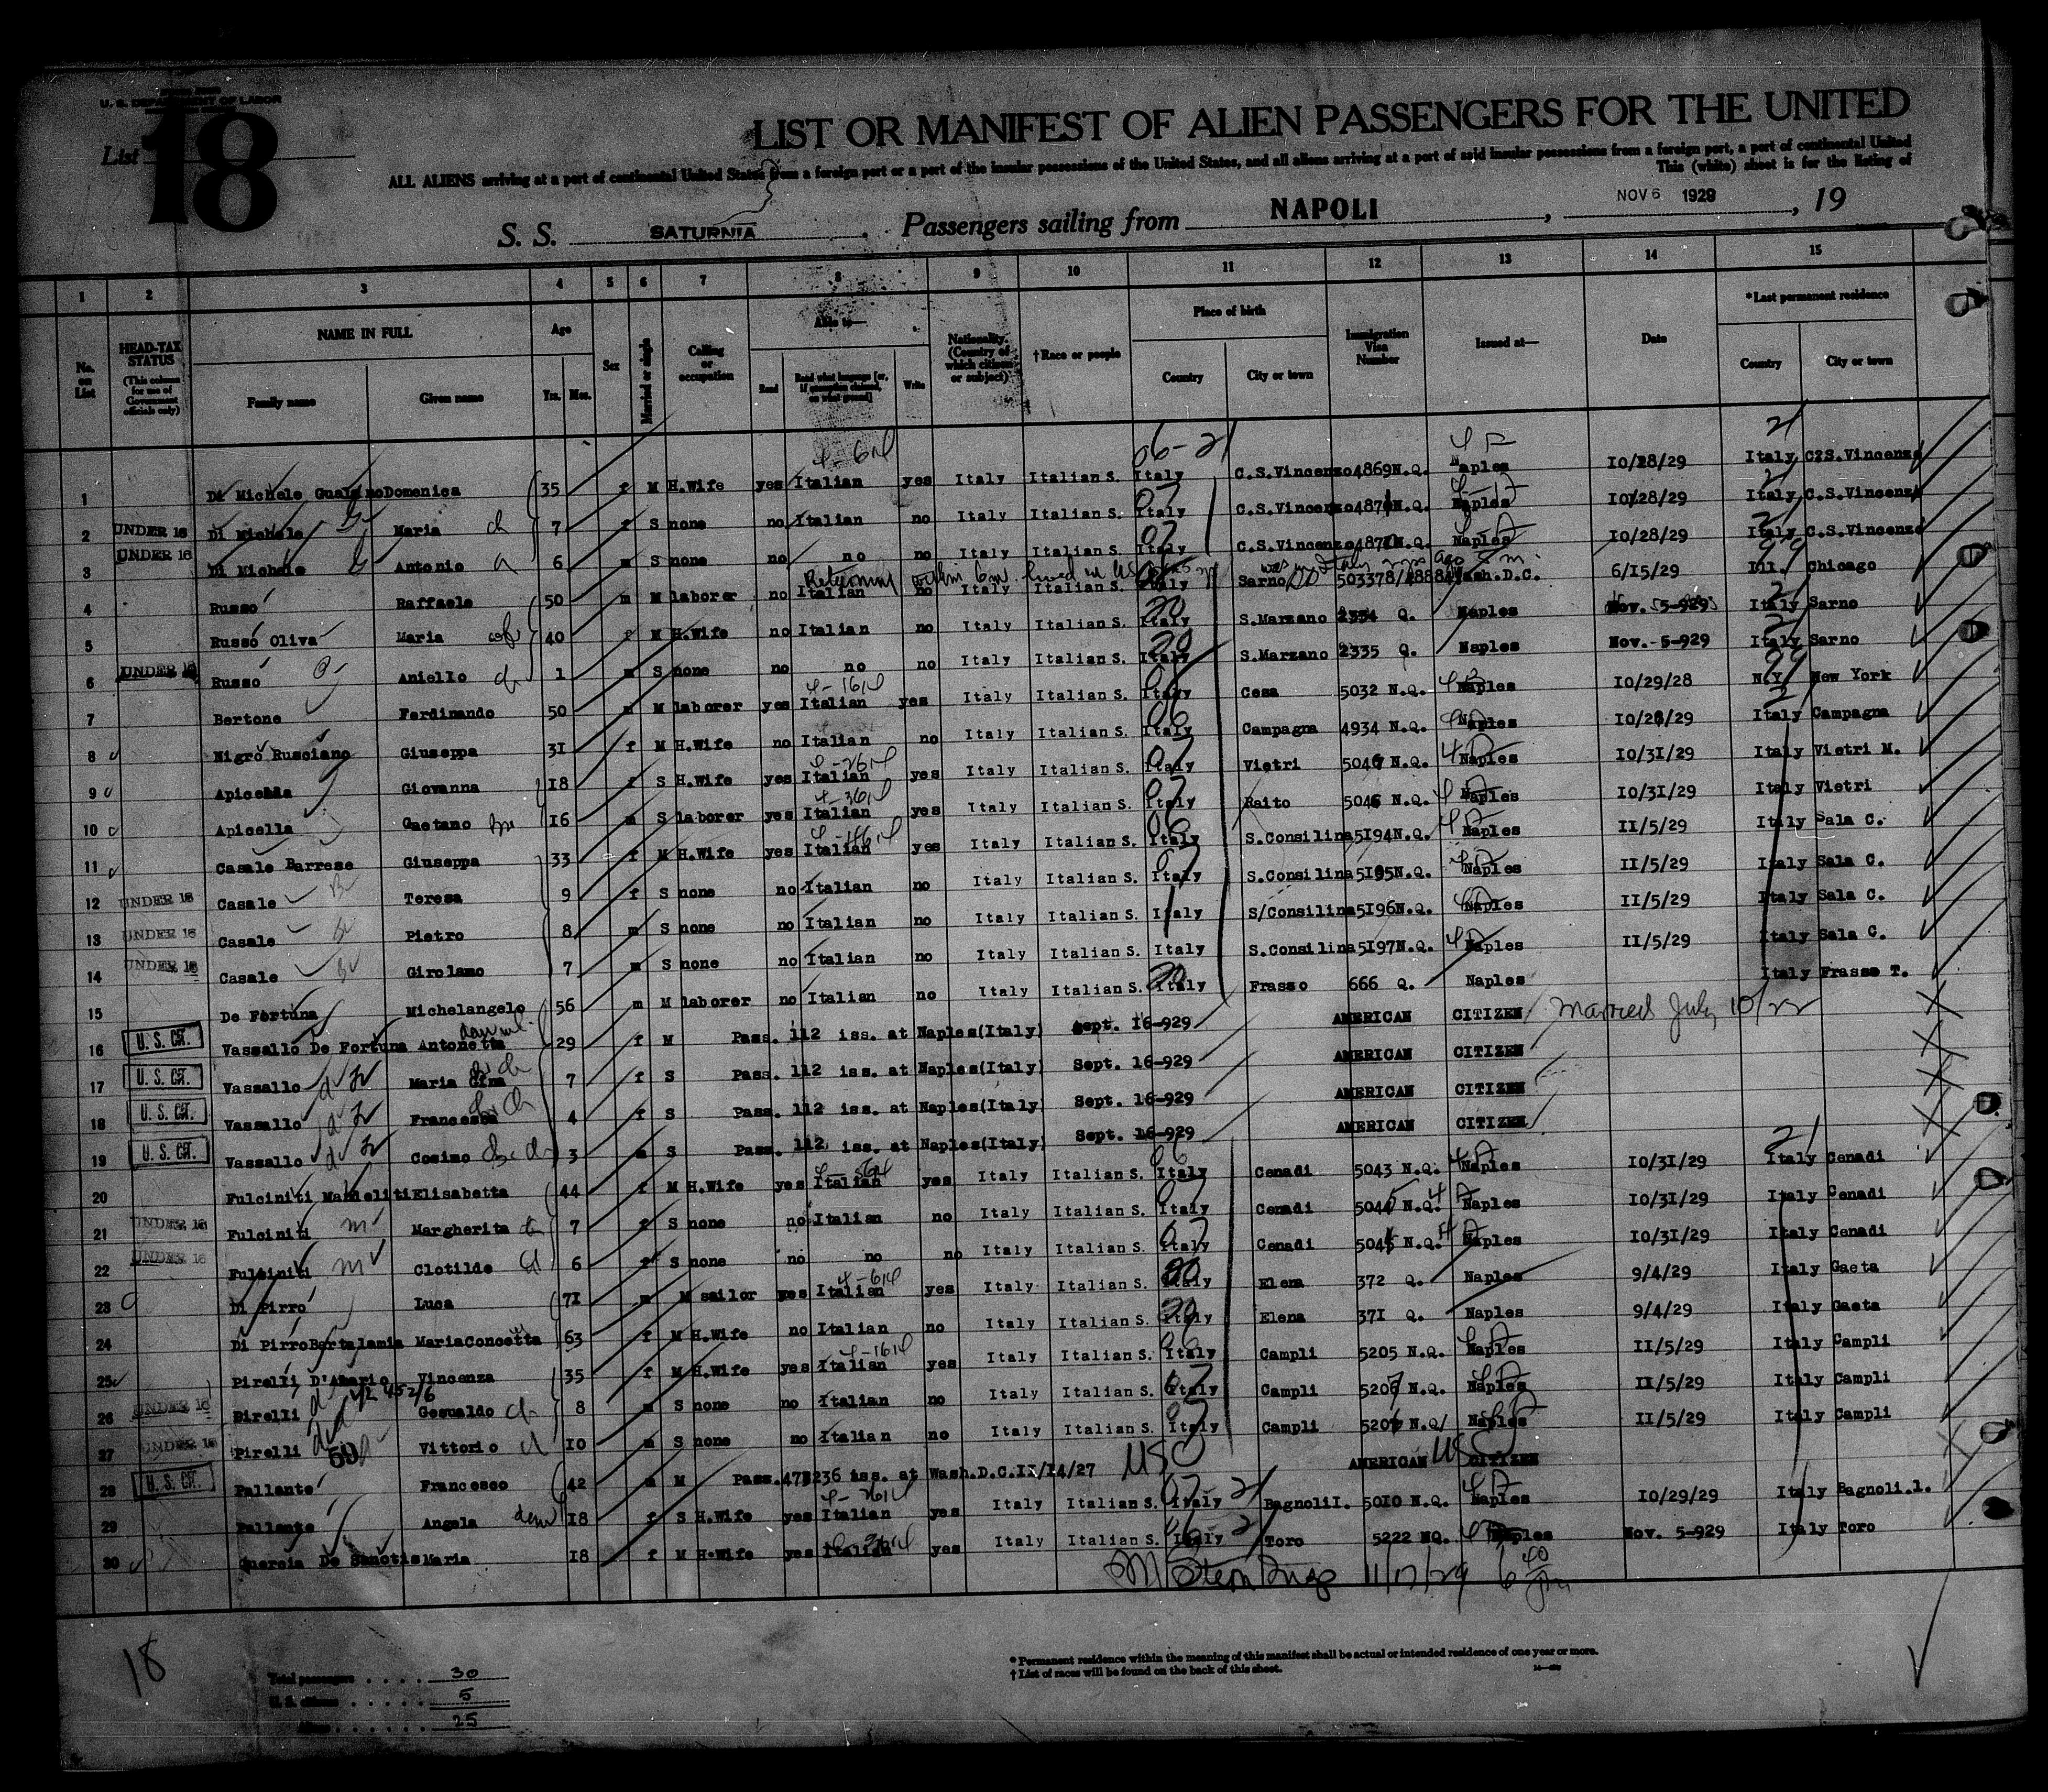 U. S. DEPARTMENT OF LABOR
List 18
LIST OR MANIFEST OF ALIEN PASSENGERS FOR THE UNITED
ALL ALIENS arriving at a port of continental United States from a foreign port or a port of the insular possessions of the United States, and all aliens arriving at a port of said insular possessions from a foreign port, a port of continental United
This (white) sheet is for the listing of
S. S. SATURNIA, Passengers sailing from NAPOLI, NOV 6 1929, 19
1 2 3 4 5 6 7 8 9 10 11 12 13 14 15
No. on List
HEAD-TAX STATUS (This column for use of Government officials only)
NAME IN FULL Family name Given name
Age Yrs. Mos.
Sex
Married or single
Calling or occupation
Able to— Read Read what language [or, if exemption claimed, on what ground] Write
Nationality. (Country of which citizen or subject)
†Race or people
Place of birth Country City or town
Immigration Visa Number
Issued at—
Date
*Last permanent residence Country City or town
1 Di Michele Gualtino Domenica 35 f M H.Wife yes Italian yes Italy Italian S. Italy C.S.Vincenzo 4869 N.Q. Naples 10/28/29 Italy C.S.Vincenzo
2 UNDER 16 Di Michele Maria ch 7 f S none no Italian no Italy Italian S. Italy C.S.Vincenzo 4871 N.Q. Naples 10/28/29 Italy C.S.Vincenzo
3 UNDER 16 Di Michele Antonio 6 m S none no no no Italy Italian S. Italy C.S.Vincenzo N.Q. Naples 10/28/29 Italy C.S.Vincenzo
Returning within 6 m. lived in US was in Italy ago
4 Russo Raffaele 50 m M laborer no Italian no Italy Italian S. Italy Sarno 503378/ Wash.D.C. 6/15/29 Ill. Chicago
5 Russo Oliva Maria wf 40 f M H.Wife no Italian no Italy Italian S. Italy S.Marzano 2334 Q. Naples Nov. 5-929 Italy Sarno
6 UNDER 16 Russo Aniello ch 1 m S none no no no Italy Italian S. Italy S.Marzano 2335 Q. Naples Nov. 5-929 Italy Sarno
7 Bertone Ferdinando 50 m M laborer yes Italian yes Italy Italian S. Italy Cesa 5032 N.Q. Naples 10/29/28 N.Y. New York
8 Nigro Rusciano Giuseppa 31 f M H.Wife no Italian no Italy Italian S. Italy Campagna 4934 N.Q. Naples 10/28/29 Italy Campagna
9 Apicella Giovanna 18 f S H.Wife yes Italian yes Italy Italian S. Italy Vietri 5047 N.Q. Naples 10/31/29 Italy Vietri M.
10 Apicella Gaetano 16 m S laborer yes Italian yes Italy Italian S. Italy Raito 5046 N.Q. Naples 10/31/29 Italy Vietri
11 Casale Barrese Giuseppa 33 f M H.Wife yes Italian yes Italy Italian S. Italy S.Consilina 5194 N.Q. Naples 11/5/29 Italy Sala C.
12 UNDER 16 Casale Teresa 9 f S none no Italian no Italy Italian S. Italy S.Consilina 5195 N.Q. Naples 11/5/29 Italy Sala C.
13 UNDER 16 Casale Pietro 8 m S none no Italian no Italy Italian S. Italy S/Consilina 5196 N.Q. Naples 11/5/29 Italy Sala C.
14 UNDER 16 Casale Girolamo 7 m S none no Italian no Italy Italian S. Italy S.Consilina 5197 N.Q. Naples 11/5/29 Italy Sala C.
15 De Fortuna Michelangelo 56 m M laborer no Italian no Italy Italian S. Italy Frasso 666 Q. Naples Italy Frasso T.
16 U. S. CIT. Vassallo De Fortuna Antonetta 29 f M Pass. 112 iss. at Naples(Italy) Sept. 16-929 AMERICAN CITIZEN Married July 10/22
17 U. S. CIT. Vassallo Maria Gina 7 f S Pass. 112 iss. at Naples(Italy) Sept. 16-929 AMERICAN CITIZEN
18 U. S. CIT. Vassallo Francesca 4 f S Pass. 112 iss. at Naples(Italy) Sept. 16-929 AMERICAN CITIZEN
19 U. S. CIT. Vassallo Cosimo 3 m S Pass. 112 iss. at Naples(Italy) Sept. 16-929 AMERICAN CITIZEN
20 Fulciniti Elisabetta 44 f M H.Wife yes Italian yes Italy Italian S. Italy Cenadi 5043 N.Q. Naples 10/31/29 Italy Cenadi
21 UNDER 16 Fulciniti Margherita 7 f S none no Italian no Italy Italian S. Italy Cenadi N.Q. Naples 10/31/29 Italy Cenadi
22 UNDER 16 Fulciniti Clotilde 6 f S none no no no Italy Italian S. Italy Cenadi N.Q. Naples 10/31/29 Italy Cenadi
23 Di Pirro Luca 71 m M sailor yes Italian yes Italy Italian S. Italy Elena 372 Q. Naples 9/4/29 Italy Gaeta
24 Di Pirro Bertalamia MariaConcetta 63 f M H.Wife no Italian no Italy Italian S. Italy Elena 371 Q. Naples 9/4/29 Italy Gaeta
25 Pirelli D'Amario Vincenza 35 f M H.Wife yes Italian yes Italy Italian S. Italy Campli 5205 N.Q. Naples 11/5/29 Italy Campli
26 UNDER 16 Birelli Gesualdo ch 8 m S none no Italian no Italy Italian S. Italy Campli N.Q. Naples 11/5/29 Italy Campli
27 UNDER 16 Pirelli 59 Vittorio 10 m S none no Italian no Italy Italian S. Italy Campli N.Q. Naples 11/5/29 Italy Campli
28 U. S. CIT. Pallante Francesco 42 m M Pass. iss. at Wash.D.C. USC AMERICAN CITIZEN
29 Pallante Angela 18 f S H.Wife yes Italian yes Italy Italian S. Italy Bagnoli I. 5010 N.Q. Naples 10/29/29 Italy Bagnoli.I.
30 Quercia De Sanctis Maria 18 f M H.Wife yes Italian yes Italy Italian S. Italy Toro 5222 NQ. Naples Nov. 5-929 Italy Toro
18
Total passengers 30
U. S. citizens 5
Aliens 25
*Permanent residence within the meaning of this manifest shall be actual or intended residence of one year or more.
†List of races will be found on the back of this sheet.